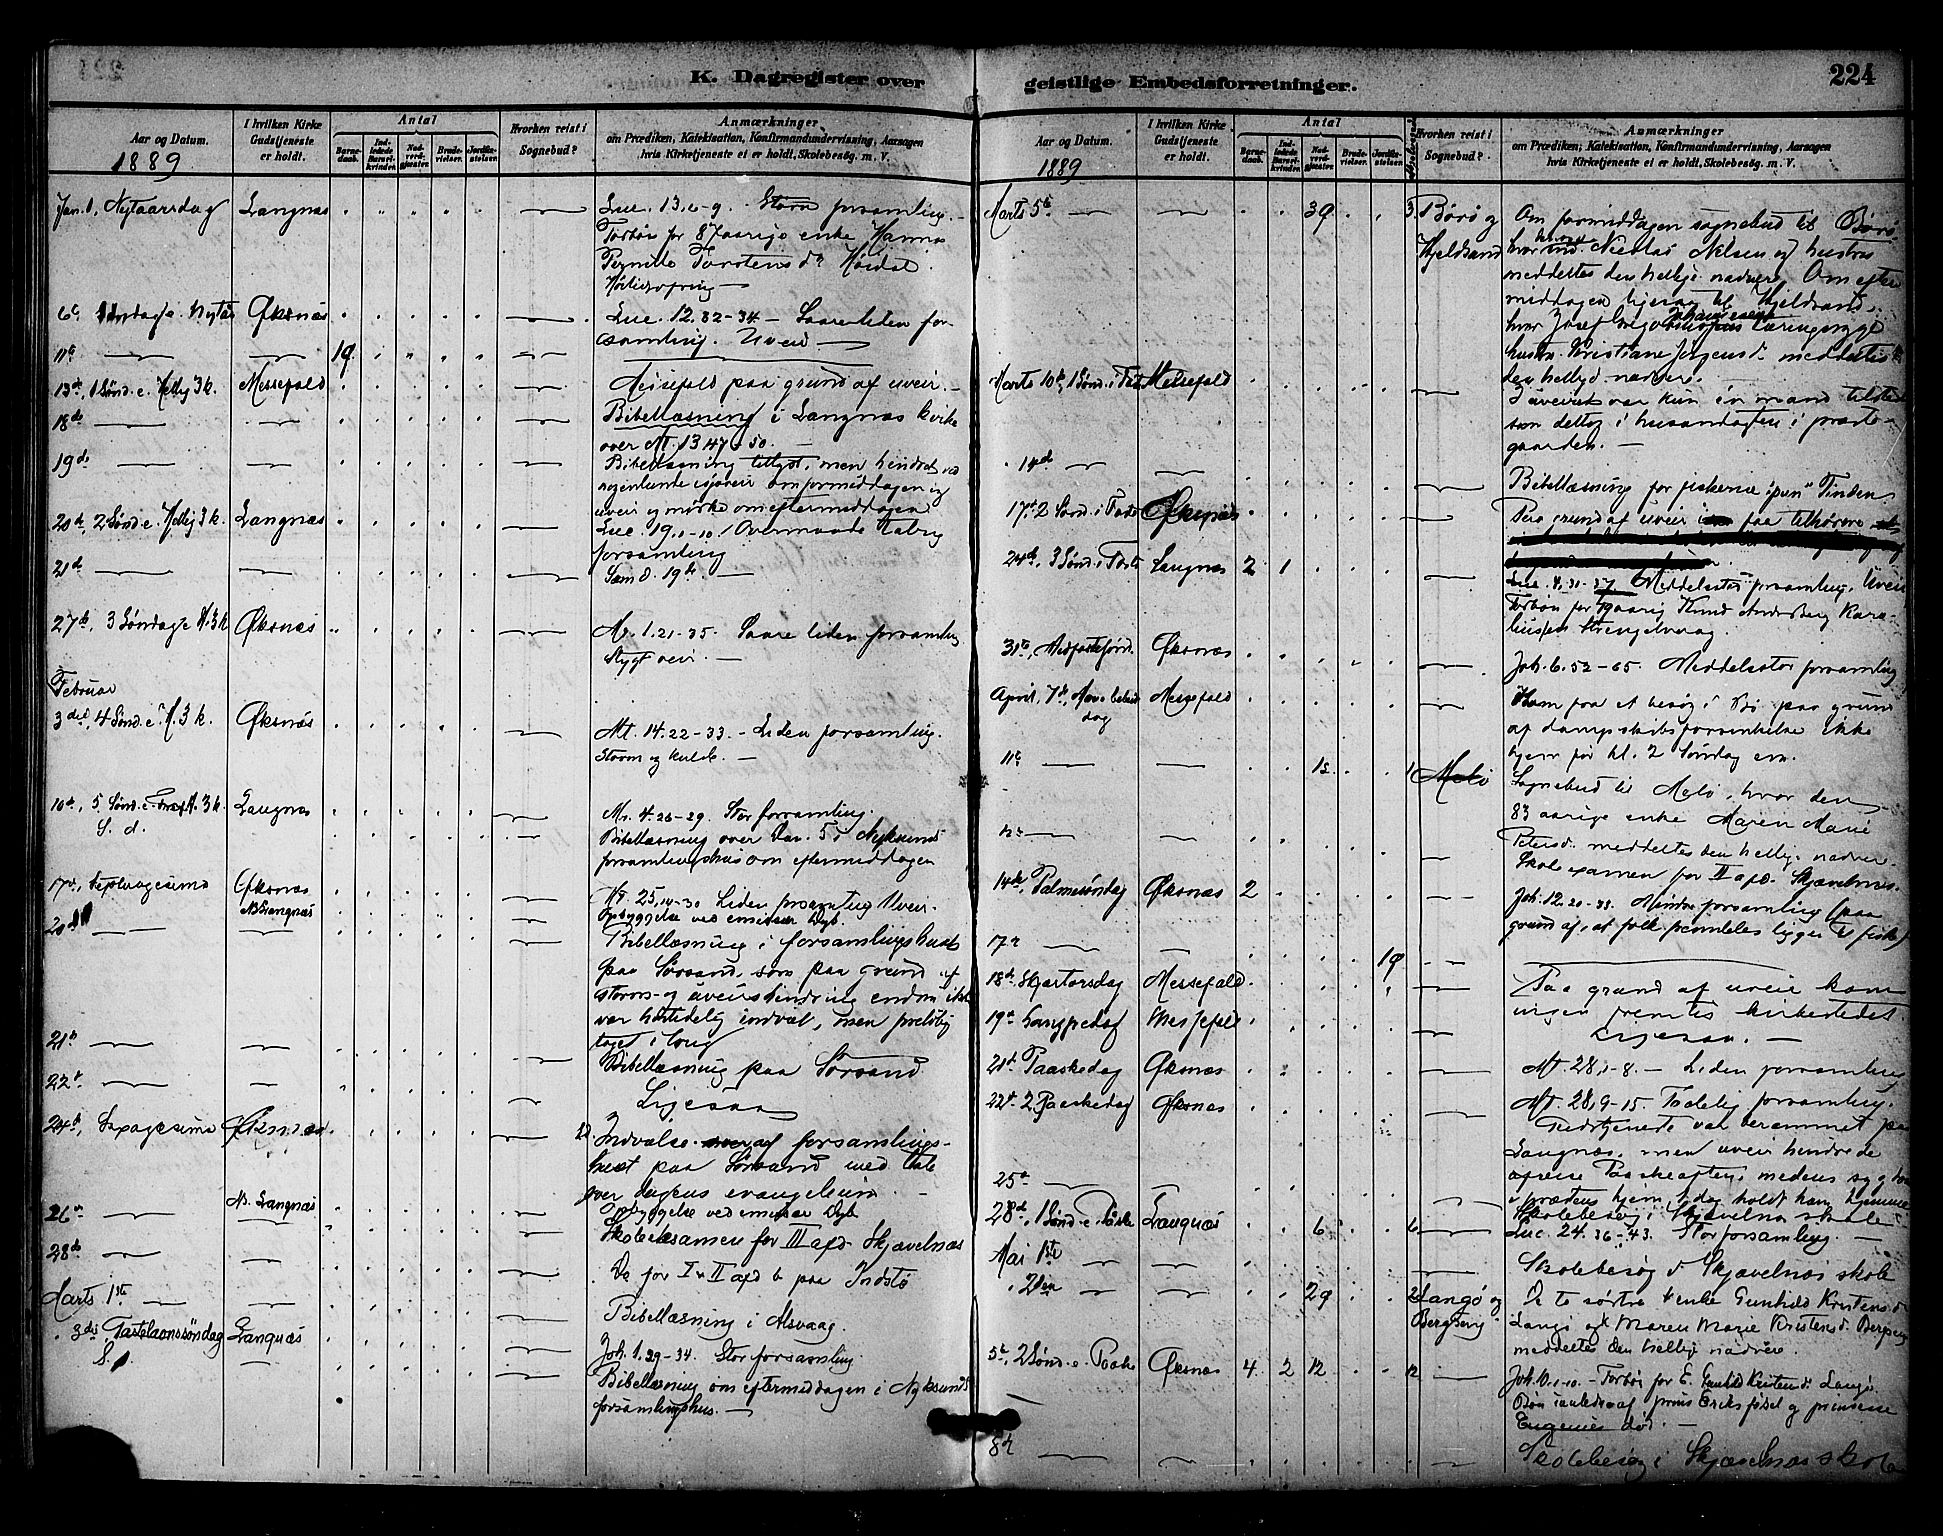 K. Dagregister over
geistlige Embedsforretninger.
224
Aar og Datum.
1889
I hvilken Kirke Gudstjeneste er holdt.
Antal
Barnedaab.
Indledede Barselkvinder.
Nadverdgjæster.
Brudevielser.
Jordfæstelser.
Hvorhen reist i Sognebud?
Anmærkninger
om Prædiken, Katekisation, Konfirmandundervisning, Aarsagen
hvis Kirketjeneste ei er holdt, Skolebesøg. m. V.
Jan. 1, Nytaarsdag Langnæs Luc. 13.6-9. Stor forsamling.
Forbøn for 87 aarige enke Hanna
Pernille Torstensdr
6te Øksnæs Luc. 12.32-34 - Saare liden for-
samling. Uveir
11te 19
13de, 1 Sønd. e. Hellig 3 k. Messefald Messefald paa grund af uveir.
18de Bibellæsning i Langnæs kirke
over Mt. 13.47-50.
19de Bibellæsning tillyst, men hindret ved
formiddagen og
uveir og mørke om eftermiddagen
20de, 2 Sønd. e. Hellig 3 k. Langnæs Luc. 19.1-10. Overmaade talrig
forsamling
21de Som d. 19de.
27de, 3 Søndag e. H. 3 k. Øksnæs Mr. 1.21-35. Saare liden forsamling
Stygt veir.
Februar
3die, 4 Sønd. e. H. 3 k. Øksnæs Mt. 14.22-33. - Liden forsamling.
Storm og kulde.
10de, 5 Sønd. e. H. 3 k. Langnæs Mr. 4.26-29. Stor forsamling.
S. d. Bibellæsning over i Nyksunds
forsamlingshus om eftermiddagen
17de, Septuagesima Øksnæs Mt. 25,14-30 Liden forsamling Uveir.
N. Langnæs Opbyggelse ved
20de Bibellæsning i forsamlingshuset
paa Sørsand, som paa grund af
storm- og uveirshindring endnu ikke
var høitidelig indviet, men foreløbig
taget i brug
21de Bibellæsning paa Sørsand
22de Ligesaa
24de, Sexagesima Øksnæs Indvielse af forsamlings-
huset paa Sørsand med tale
over dagens evangelium.
N. Langnæs Opbyggelse ved
26de Skoleeksamen for III afd. Skjævelnæs
28de Do for I & II afd paa Indstø
Marts 1ste Bibellæsning i Alsvaag.
3die, Fastelavnssøndag Langnæs Joh. 1.29-34. Stor forsamling.
S. d. Bibellæsning om eftermiddagen i Nyksunds
forsamlingshus.
Aar og Datum.
1889
I hvilken Kirke Gudstjeneste er holdt.
Antal
Barnedaab.
Indledede Barselkvinder.
Nadverdgjæster.
Brudevielser.
Jordfæstelser.
Hvorhen reist i Sognebud?
Anmærkninger
om Prædiken, Katekisation, Konfirmandundervisning, Aarsagen
hvis Kirketjeneste ei er holdt, Skolebesøg m. V.
Marts 5te 39 3 Børø og Hjeldsand Om formiddagen sognebud til Børø
hvor Nicolai Nielsen og hustru
meddeltes den hellige nadver. Om efter-
middagen ligesaa til Hjeldsand,
hvor tæringssyge
hustru Kristiane Jørgensd. meddeltes
den hellige nadver.
Marts 10de, 1 Sønd. i Faste Messefald I uveiret var kun én mand tilstede
som deltog i husandagten i præste-
gaarden.
14de Bibellæsning for fiskerne Tinden
17de 2 Sønd. i Faste Øksnæs Paa grund af uveir faa tilhørere
24de, 3 Sønd. i Faste Langnæs 2 1 Luc. 4.31-37. Middelstor forsamling. Uveir
Forbøn for Knud
31te, Midfastesønd. Øksnæs Joh. 6.52-65. Middelstor forsamling
April 7de, Mar. bebud. dag Messefald Kom fra et besøg i Bø paa grund
af dampskibsforsinkelse ikke
hjem før kl. 2 Søndag em.
11te 1s. 1 Melø Sognebud til Melø, hvor den
83 aarige enke Maren Marie
Petersd. meddeltes den hellige nadver.
12te Skoleexamen for II afd. Skjævelnæs.
14de, Palmesøndag Øksnæs 2 Joh. 12.20-33. Mindre forsamling (paa
grund af, at folk fremdeles ligger til fiske)
17de 19
18de Skjærtorsdag Messefald Paa grund af uveir kom
ingen fremtil kirkestedet
19de Langfredag Messefald Ligesaa.
21de Paaskedag Øksnæs Mt. 28,1-8. - Liden forsamling
22de 2 Paaskedag Øksnæs Mt. 28,9-15. Talrig forsamling.
Gudstjeneste var berammet paa
Langnæs, men uveir hindrede
Paaskeaften, medens
25de Skolebesøg i Skjævelnæs skole
28de, 1 Sønd. e. Paaske Langnæs 6 6 Luc. 24.36-43. Stor forsamling.
Mai 1ste Skolebesøg i Skjævelnæs skole
2den 29 2 Langø og Bergseng De to søstre enke Gunhild Kristensd.
Langø og Maren Marie Kristensd. Bergseng
meddeltes den hellige nadver.
5te, 2 Sønd. e. Paaske Øksnæs 4 2 12 12 Joh. 10.1-10. - Forbøn for E. Gunhild Kristensd. Langø.
Bøn i anledn. af prins Eriks fødsel og prinsesse
Eugenies død.
8de Skolebesøg i Skjævelnæs skole